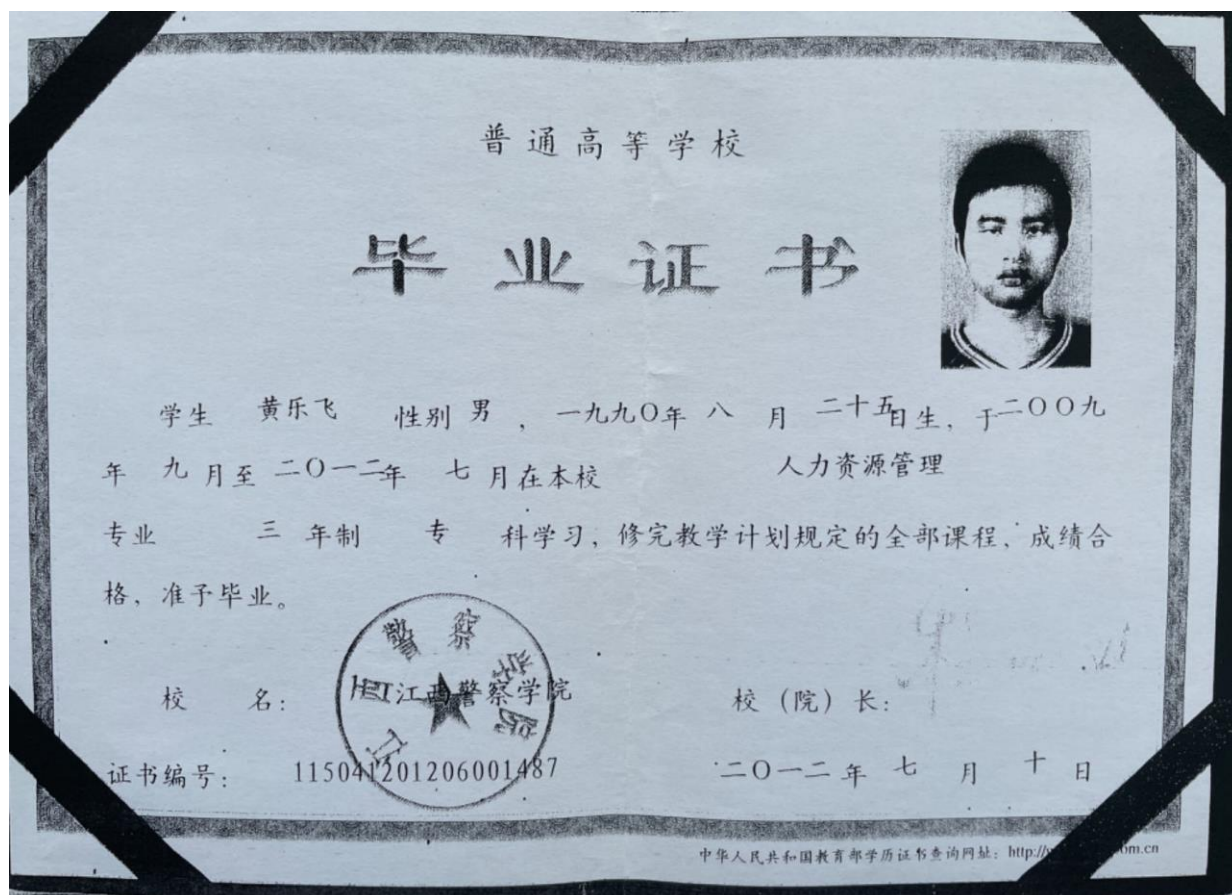 普通高等学校
毕业证书
学生 黄乐飞 性别 男，一九九〇年 八 月 二十五日生，于二〇〇九
年 九 月至 二〇一二年 七 月在本校 人力资源管理
专业 三 年制 专 科学习，修完教学计划规定的全部课程，成绩合
格，准予毕业。
江西警察学院
校 名： 江西警察学院 校（院）长：
证书编号： 115041201206001487 二〇一二 年 七 月 十 日
中华人民共和国教育部学历证书查询网址：http://